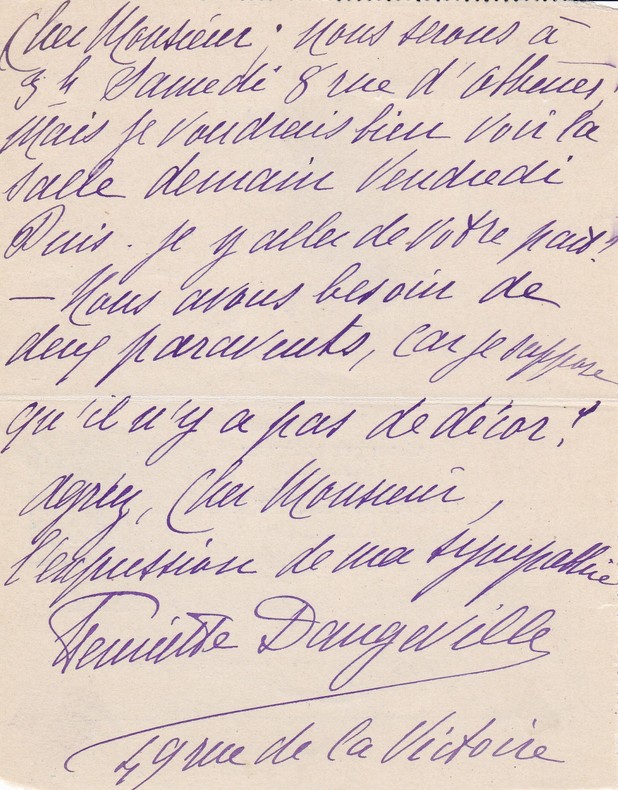 Cher Monsieur ; nous serons à
3 h Samedi 8 rue d'Athènes,
Mais je voudrais bien voir la
salle demain Vendredi
Puis-je y aller de votre part?
— Nous avons besoin de
deux paravents, car je suppose
qu'il n'y a pas de décor?
Agréez, Cher Monsieur,
l'expression de ma sympathie
Henriette Dangeville
49 rue de la Victoire